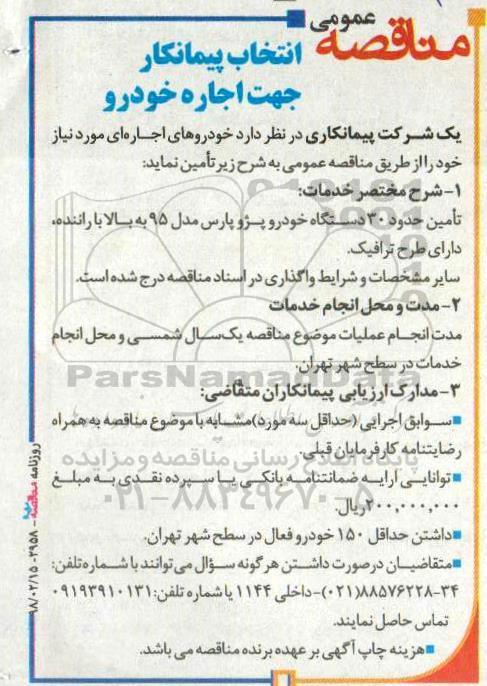 مناقصه عمومی
انتخاب پیمانکار
جهت اجاره خودرو
یک شرکت پیمانکاری در نظر دارد خودروهای اجاره‌ای مورد نیاز
خود را از طریق مناقصه عمومی به شرح زیر تأمین نماید:
۱- شرح مختصر خدمات:
تأمین حدود ۳۰ دستگاه خودرو پژو پارس مدل ۹۵ به بالا با راننده،
دارای طرح ترافیک.
سایر مشخصات و شرایط واگذاری در اسناد مناقصه درج شده است.
۲- مدت و محل انجام خدمات
مدت انجام عملیات موضوع مناقصه یک‌سال شمسی و محل انجام
خدمات در سطح شهر تهران.
۳- مدارک ارزیابی پیمانکاران متقاضی:
■ سوابق اجرایی (حداقل سه مورد) مشابه با موضوع مناقصه به همراه
رضایتنامه کارفرمایان قبلی.
■ توانایی ارایه ضمانتنامه بانکی یا سپرده نقدی به مبلغ
۲۰۰,۰۰۰,۰۰۰ ریال.
■ داشتن حداقل ۱۵۰ خودرو فعال در سطح شهر تهران.
■ متقاضیان درصورت داشتن هرگونه سؤال می‌توانند با شماره تلفن:
۳۴-۸۸۵۷۶۲۲۸(۰۲۱)-داخلی ۱۱۴۴ یا شماره تلفن: ۰۹۱۹۳۹۱۰۱۳۱
تماس حاصل نمایند.
■ هزینه چاپ آگهی بر عهده برنده مناقصه می باشد.
روزنامه مناقصه - ۲۹۵۸ - ۹۸/۰۲/۱۵
ParsNamadData
پایگاه اطلاع رسانی مناقصه و مزایده
۰۲۱-۸۸۳۴۹۶۷۰-۵